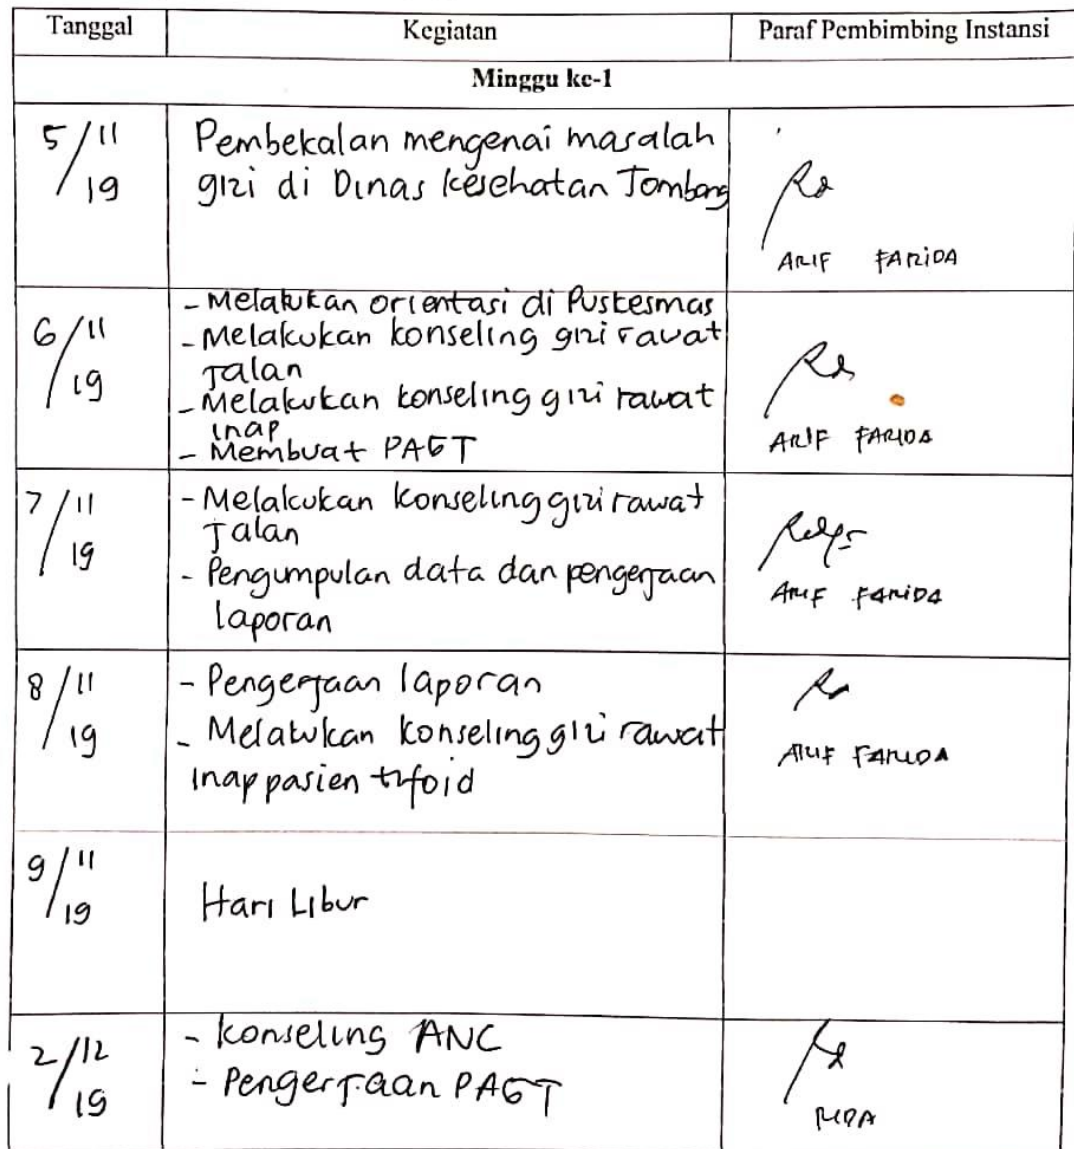 Tanggal Kegiatan Paraf Pembimbing Instansi
Minggu ke-1
5/11/19
Pembekalan mengenai masalah
gizi di Dinas kesehatan Jombang
ARIF FARIDA
6/11/19
- Melakukan orientasi di Puskesmas
- Melakukan konseling gizi rawat
Jalan
- Melakukan konseling gizi rawat
inap
- Membuat PAGT
ARIF FARIDA
7/11/19
- Melakukan konseling gizi rawat
Jalan
- Pengumpulan data dan pengerjaan
laporan
ARIF FARIDA
8/11/19
- Pengerjaan laporan
- Melakukan konseling gizi rawat
inap pasien tifoid
ARIF FARIDA
9/11/19
Hari Libur
2/12/19
- konseling ANC
- Pengerjaan PAGT